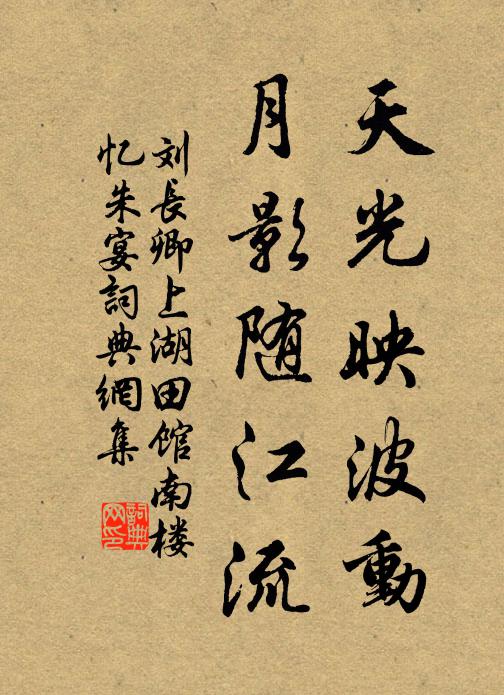 天光映波動
月影随江流
刘長卿上湖田館南楼
忆朱宴詞典網集
詞典
网印